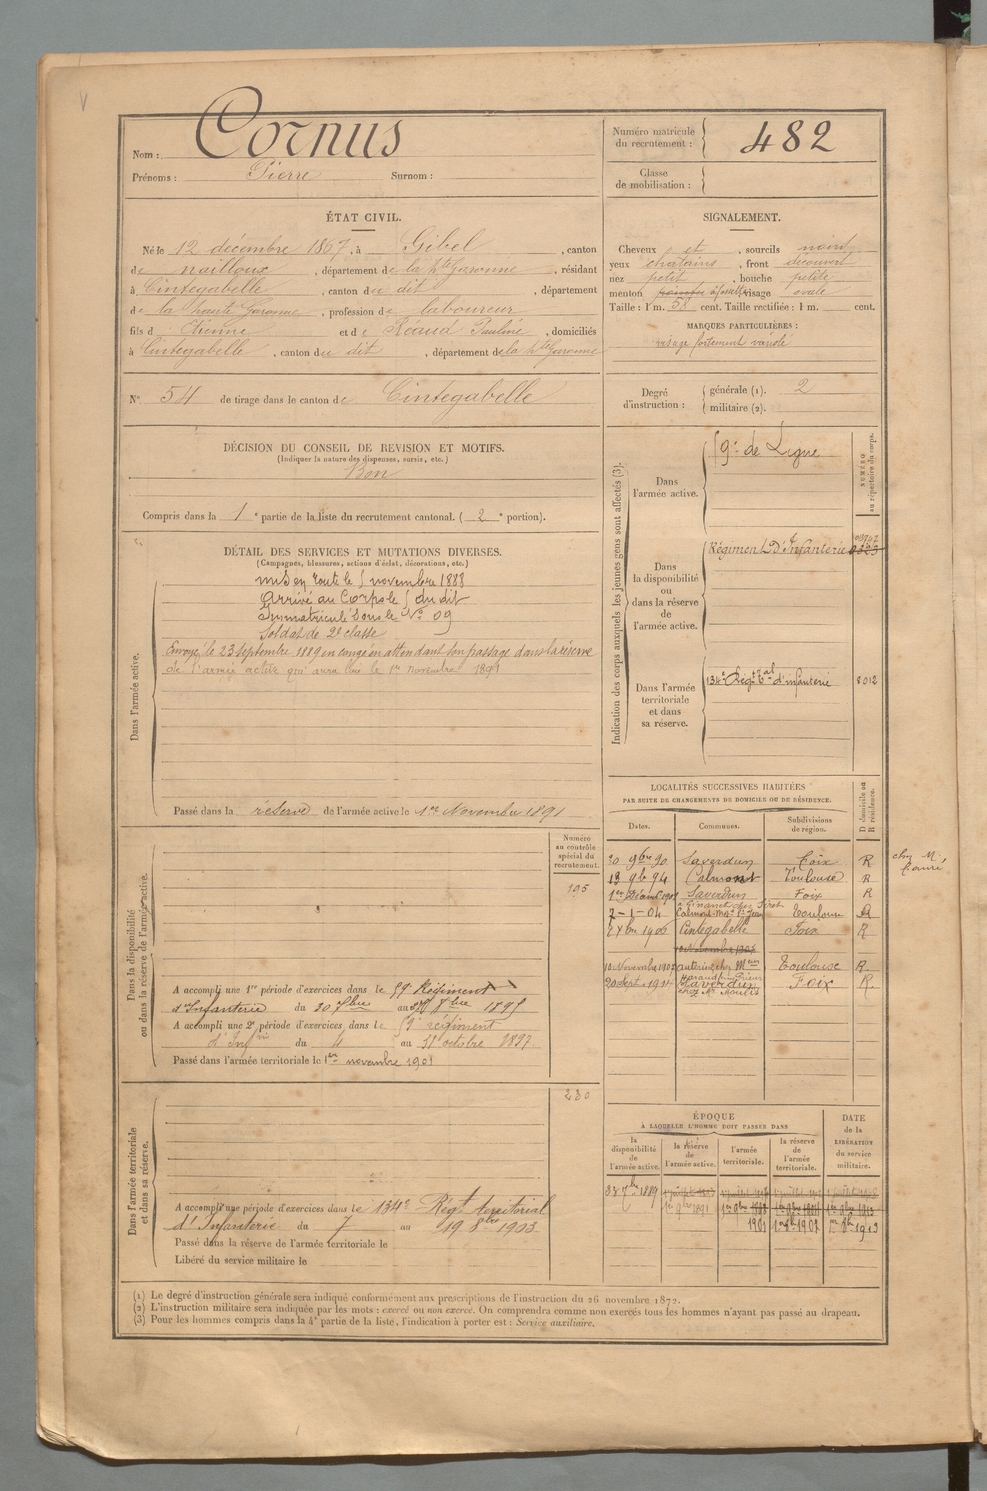 V
Nom : Cornus
Prénoms : Pierre Surnom :
Numéro matricule du recrutement : 482
Classe de mobilisation :
ÉTAT CIVIL.
Né le 12 décembre 1867, à Gibel, canton
de nailloux, département de la hte Garonne, résidant
à Cintegabelle, canton du dit, département
de la haute Garonne, profession de laboureur
fils d' Etienne et de Réaud Pauline, domiciliés
à Cintegabelle, canton du dit, département de la hte Garonne
N° 54 de tirage dans le canton de Cintegabelle
SIGNALEMENT.
Cheveux et, sourcils noirs
yeux chatains, front découvert
nez petit, bouche petite
menton à fossette visage ovale
Taille : 1 m. 58 cent. Taille rectifiée : 1 m. cent.
MARQUES PARTICULIÈRES :
visage fortement variolé
Degré d'instruction : générale (1). 2
militaire (2).
DÉCISION DU CONSEIL DE REVISION ET MOTIFS.
(Indiquer la nature des dispenses, sursis, etc.)
Bon
Compris dans la 1e partie de la liste du recrutement cantonal. (2e portion).
DÉTAIL DES SERVICES ET MUTATIONS DIVERSES.
(Campagnes, blessures, actions d'éclat, décorations, etc.)
Dans l'armée active.
mis en route le 5 novembre 1888
Arrivé au Corps le 5 du dit
Immatriculé sous le N°
Soldat de 2e classe
Envoyé le 23 Septembre 1889 en congé en attendant son passage dans la réserve
de l'armée active qui aura lieu le 1er novembre 1891
Passé dans la réserve de l'armée active le 1er Novembre 1891
Indication des corps auxquels les jeunes gens sont affectés (3).
NUMÉRO au répertoire du corps.
Dans l'armée active.
59e de Ligne
Dans la disponibilité ou dans la réserve de l'armée active.
Régiment d'Infanterie
Dans l'armée territoriale et dans sa réserve.
134e Régt tal d'infanterie 8012
Numéro au contrôle spécial du recrutement.
Dans la disponibilité ou dans la réserve de l'armée active.
195
A accompli une 1re période d'exercices dans le 59e Régiment
d'Infanterie du 30 7bre au 27 8bre 1895
A accompli une 2e période d'exercices dans le 59e régiment
d'Infrie du 4 au 31 octobre 1897
Passé dans l'armée territoriale le 1er novembre 1901
LOCALITÉS SUCCESSIVES HABITÉES
PAR SUITE DE CHANGEMENTS DE DOMICILE OU DE RÉSIDENCE.
D domicile ou R résidence.
Dates. Communes. Subdivisions de région.
20 9bre 90 Saverdun Foix R chez M.
13 9b 94 Calmont Toulouse R
Saverdun Foix R
7-1-04 Calmont Toulouse R
1906 Cintegabelle Foix R
10 Novembre 1907 Toulouse R
20 Sept. 1911 Saverdun Foix R
Dans l'armée territoriale et dans sa réserve.
230
A accompli une période d'exercices dans le 134e Régt territorial
d'Infanterie du 7 au 19 8bre 1903
Passé dans la réserve de l'armée territoriale le
Libéré du service militaire le
ÉPOQUE
À LAQUELLE L'HOMME DOIT PASSER DANS
DATE de la LIBÉRATION du service militaire.
la disponibilité de l'armée active.
la réserve de l'armée active.
l'armée territoriale.
la réserve de l'armée territoriale.
23 7bre 1889
1er 9bre 1891
1901 1er 8b 1907 1er 8b 1913
(1) Le degré d'instruction générale sera indiqué conformément aux prescriptions de l'instruction du 26 novembre 1872.
(2) L'instruction militaire sera indiquée par les mots : exercé ou non exercé. On comprendra comme non exercés tous les hommes n'ayant pas passé au drapeau.
(3) Pour les hommes compris dans la 4e partie de la liste, l'indication à porter est : Service auxiliaire.